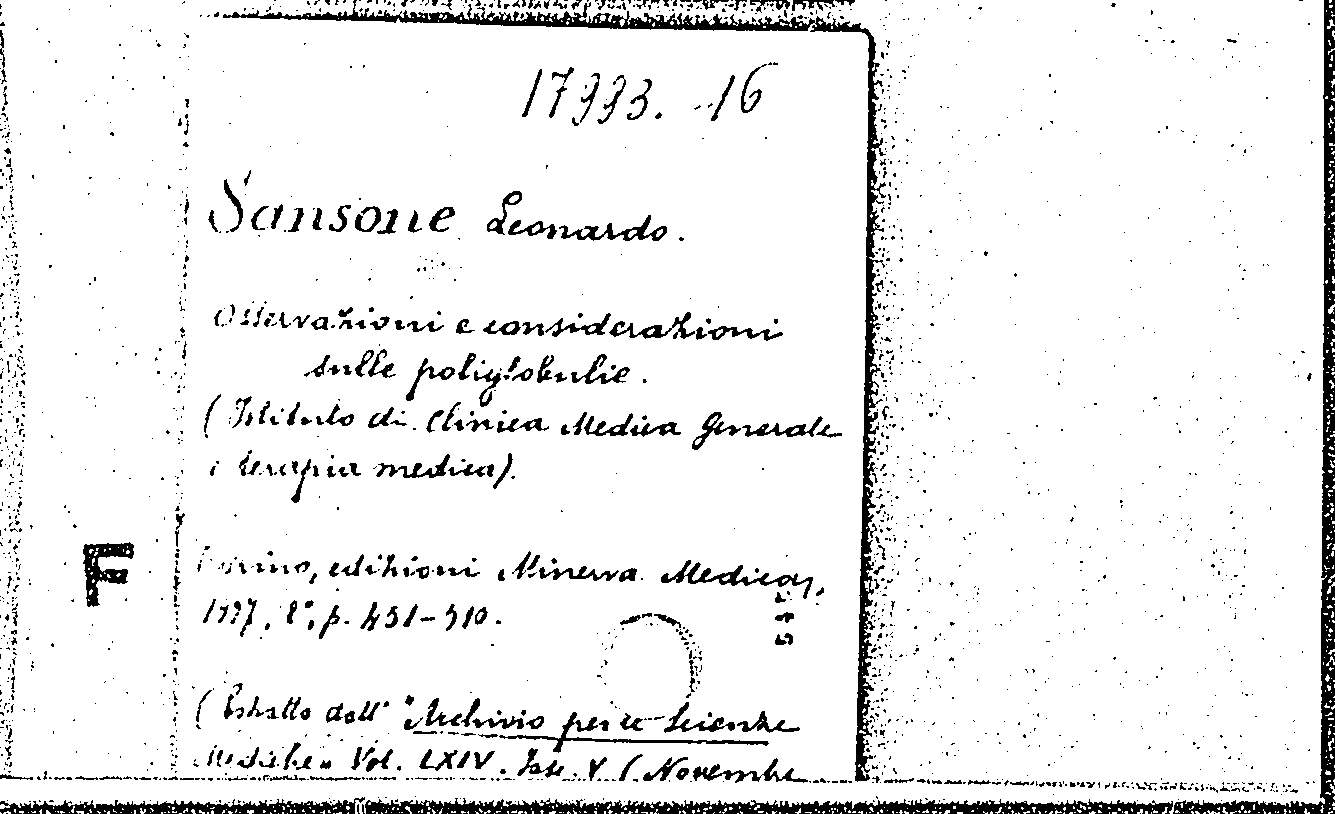 17993. -16
Sansone Leonardo.
Osservazioni e considerazioni
sulle poliglobulie.
(Istituto di Clinica Medica Generale
e terapia medica).
F
Torino, edizioni Minerva Medica,
8°, p. 451-510.
(Estratto dall' "Archivio per le Scienze
Mediche" Vol. LXIV. Fasc. V (Novembre